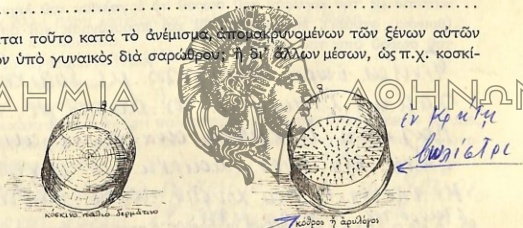 ται τοῦτο κατὰ τὸ ἀνέμισμα, ἀπομακρυνομένων τῶν ξένων αὐτῶν
ν ὑπὸ γυναικὸς διὰ σαρώθρου; ἢ δι' ἄλλων μέσων, ὡς π.χ. κοσκί-
ΔΗΜΙΑ ΑΘΗΝΩΝ
ἐν Κρήτῃ
κόσκινο παλιὸ δερμάτινο
κόθρος ἢ ἀρυλόγος